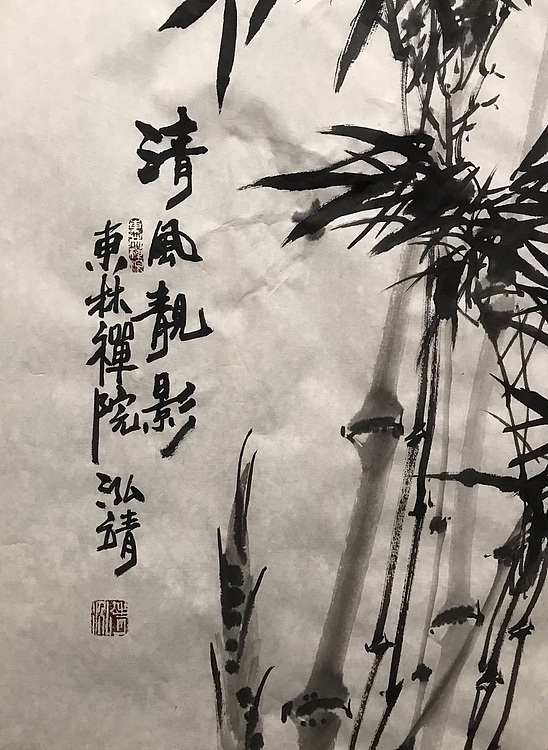 清風靚影
東林禪院 泓靖